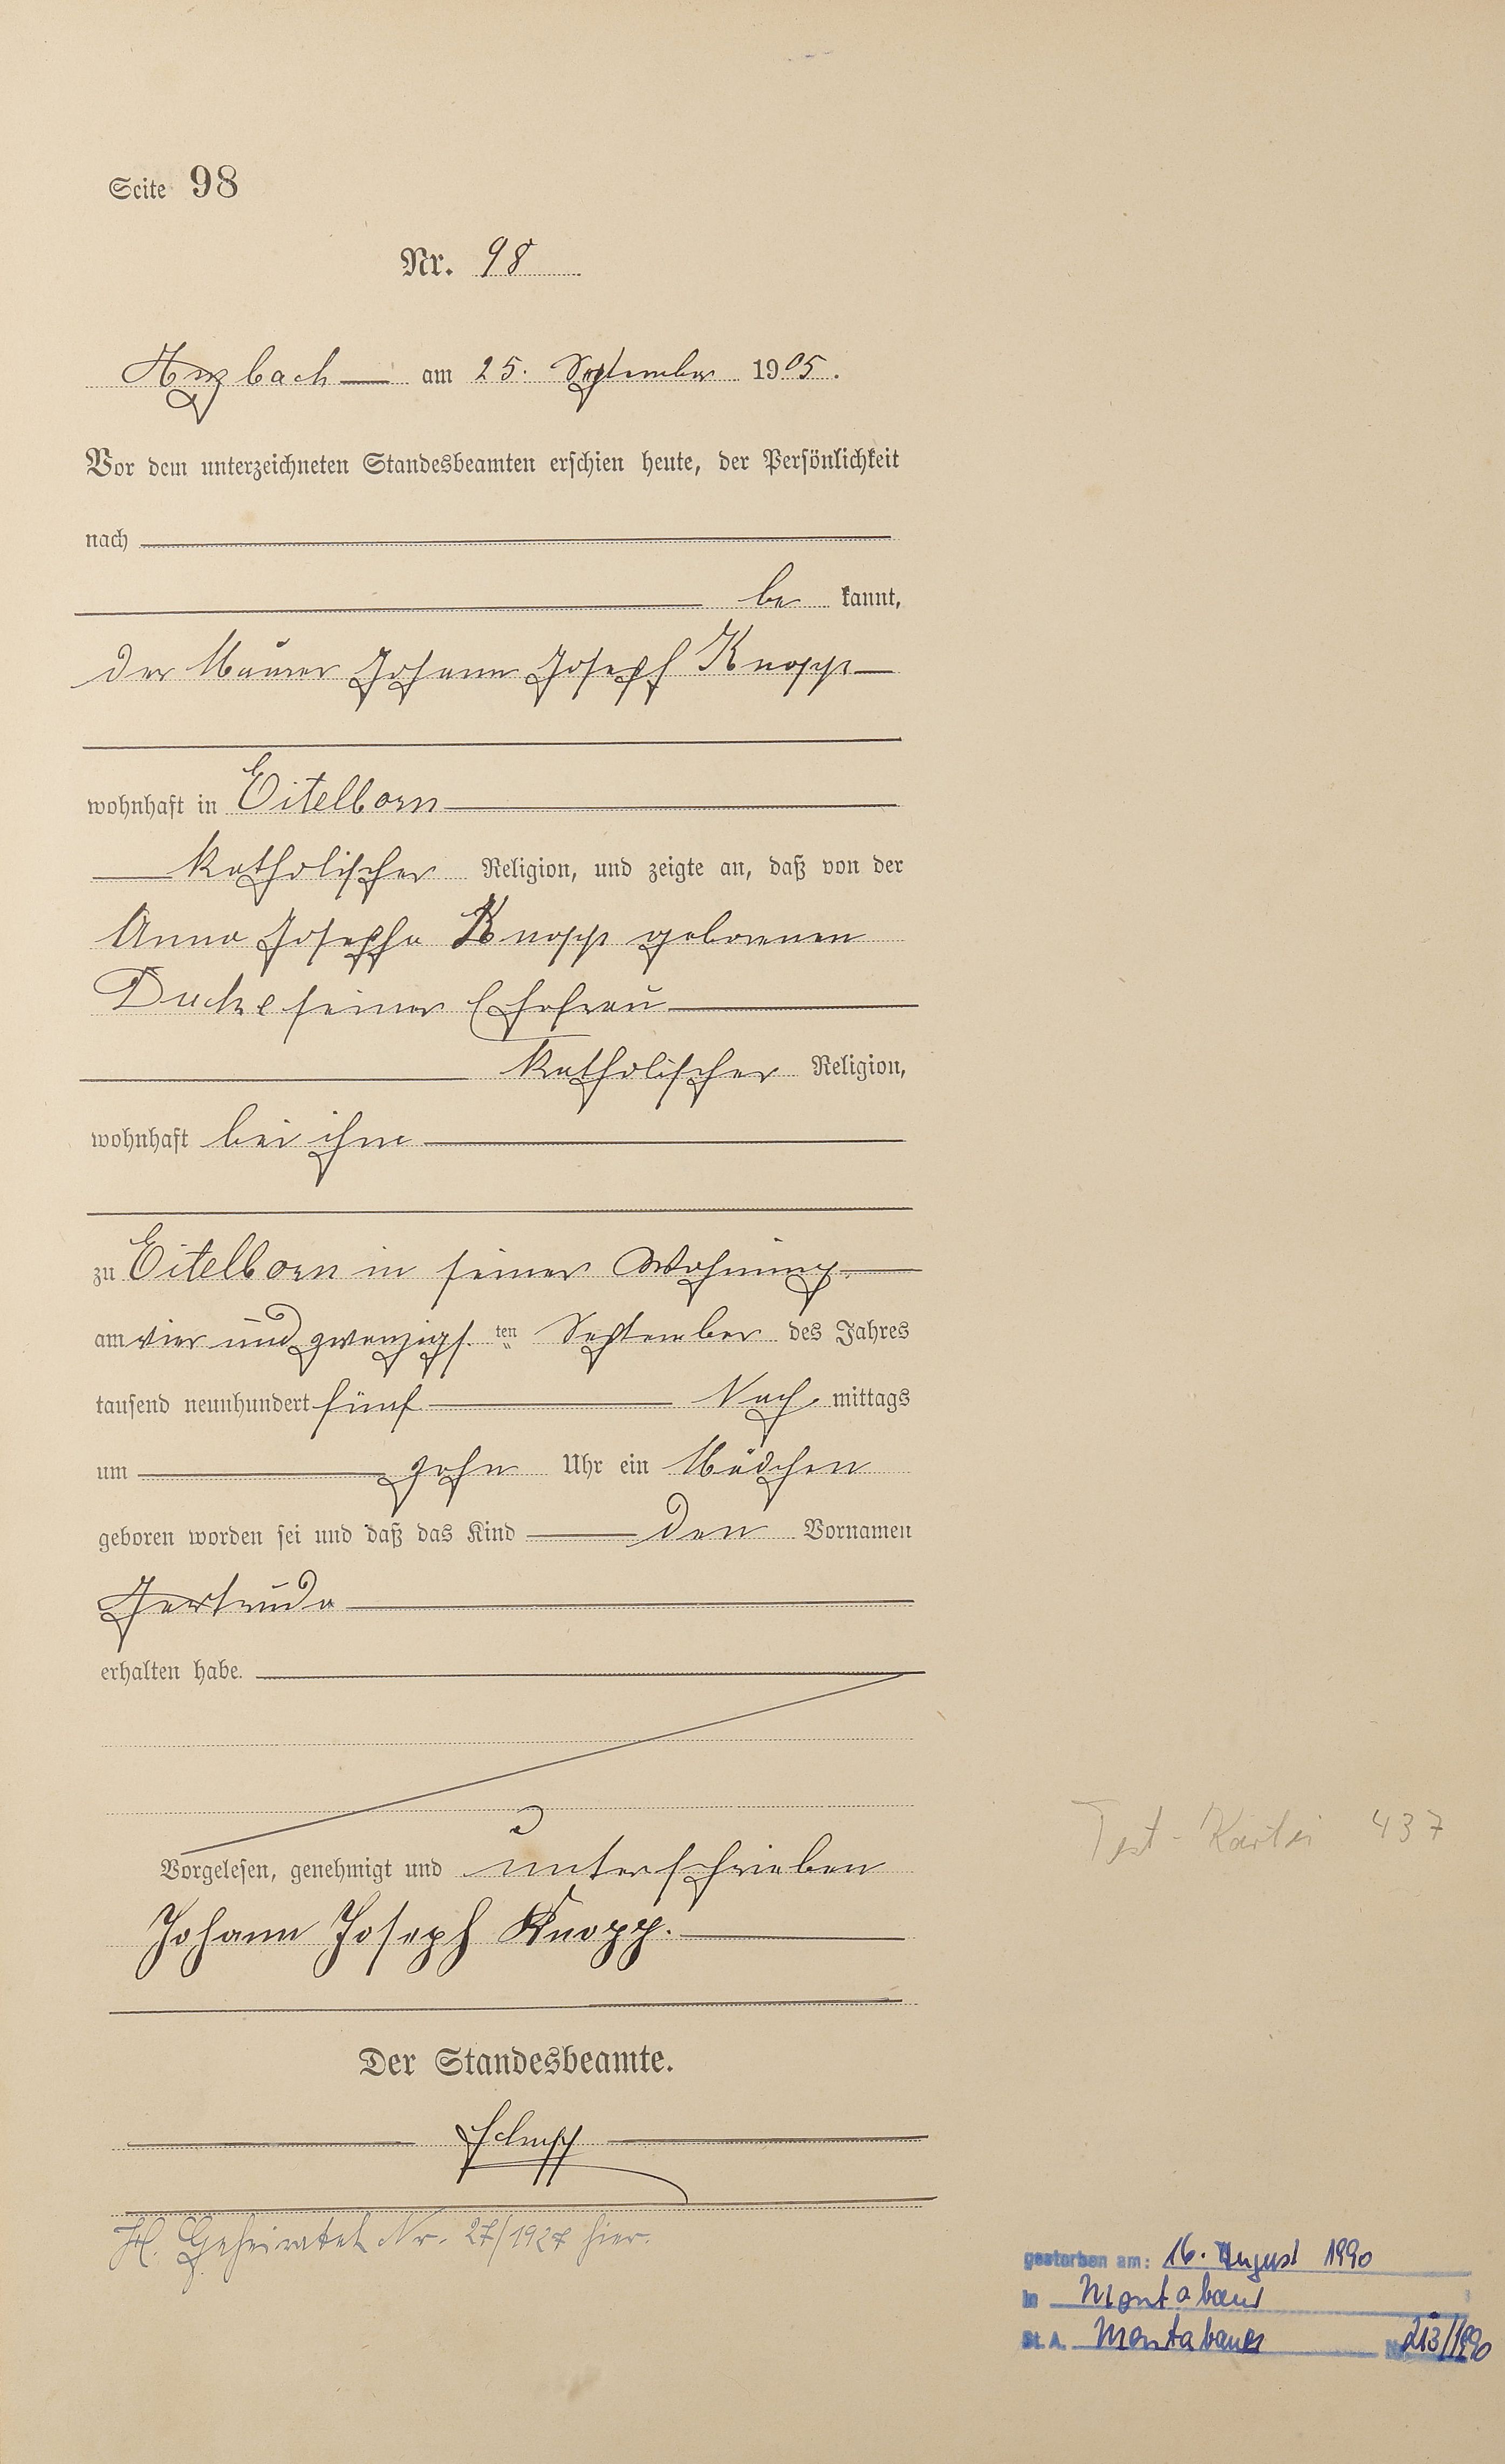 Seite 98
Nr. 98
Arzbach am 25. September 1905.
Vor dem unterzeichneten Standesbeamten erschien heute, der Persönlichkeit
nach
be kannt,
der Maurer Johann Joseph Knopp
wohnhaft in Eitelborn
katholischer Religion, und zeigte an, daß von der
Anna Josepha Knopp geborenen
Duckel seiner Ehefrau
katholischer Religion,
wohnhaft bei ihm
zu Eitelborn in seiner Wohnung.
am vier und zwanzigs. ten September des Jahres
tausend neunhundert fünf Nach mittags
um zehn Uhr ein Mädchen
geboren worden sei und daß das Kind den Vornamen
Gertruda
erhalten habe.
Vorgelesen, genehmigt und unterschrieben
Johann Joseph Knopp.
Der Standesbeamte.
H. Geheiratet Nr. 27/1927 hier.
Test-Kartei 437
gestorben am: 16. August 1990
in Montabaur
St. A. Montabaur Nr. 213/1990